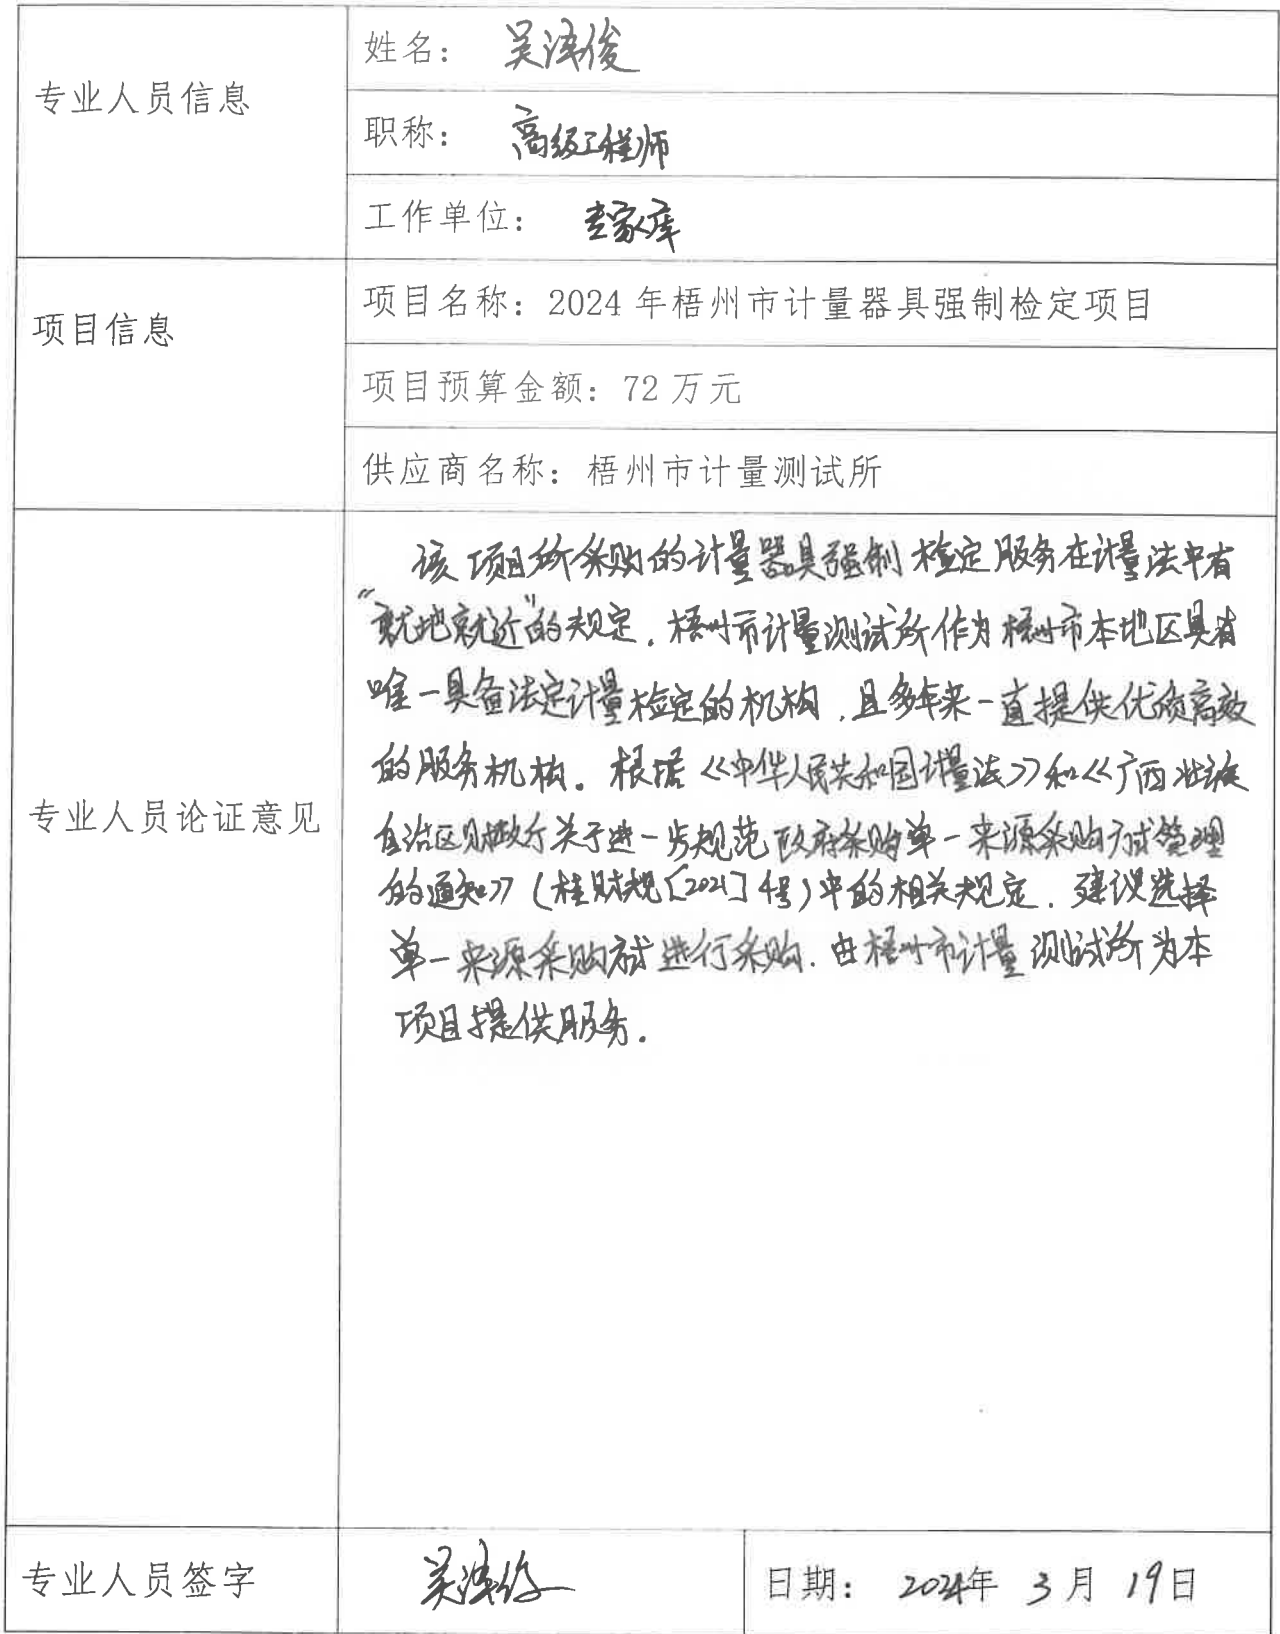 专业人员信息
姓名： 吴泽俊
职称： 高级工程师
工作单位： 专家库
项目信息
项目名称：2024 年梧州市计量器具强制检定项目
项目预算金额：72 万元
供应商名称：梧州市计量测试所
专业人员论证意见
该项目所采购的计量器具强制检定服务在计量法中有
“就地就近”的规定，梧州市计量测试所作为梧州市本地区具有
唯一具备法定计量检定的机构，且多年来一直提供优质高效
的服务机构。根据《中华人民共和国计量法》和《广西壮族
自治区财政厅关于进一步规范政府采购单一来源采购方式管理
的通知》（桂财规〔2021〕4号）中的相关规定，建议选择
单一来源采购方式进行采购，由梧州市计量测试所为本
项目提供服务。
专业人员签字
吴泽俊
日期： 2024年 3月 19日